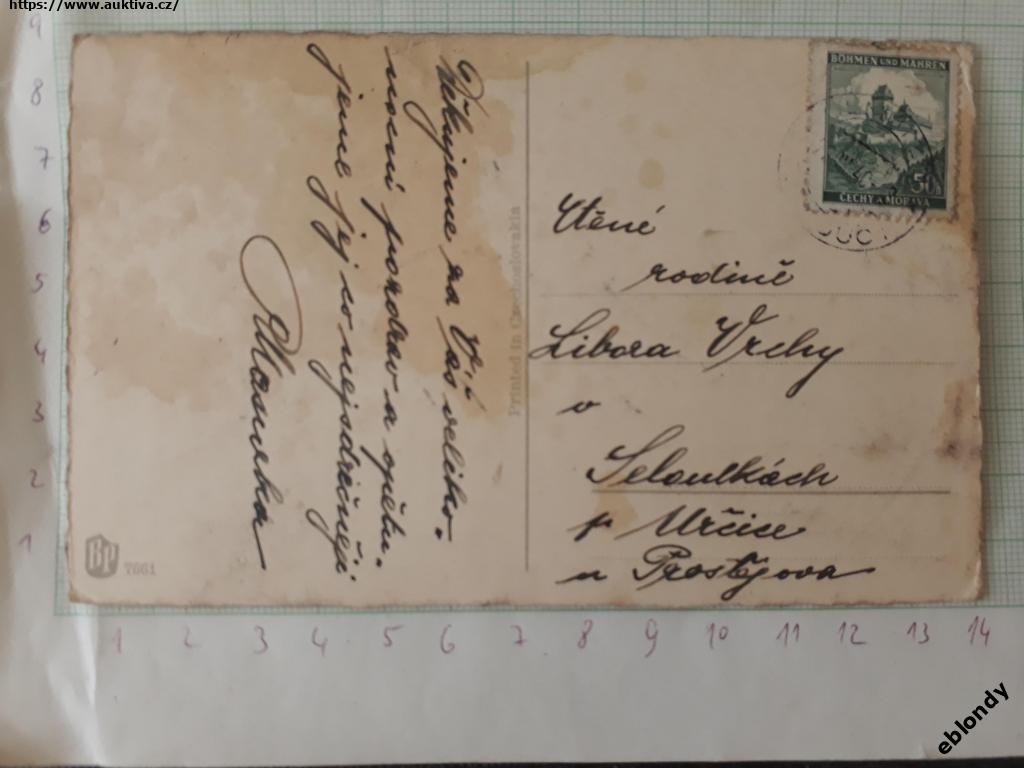 https://www.auktiva.cz/
9
8
7
6
5
4
3
2
1
Děkujeme za Váš veliko-
noční pozdrav a opětu-
jeme jej co nejsrdečněji
Printed in Czechoslovakia
BP 7661
BÖHMEN UND MÄHREN
50
ČECHY A MORAVA
Ctěné
rodině
Libora Vrchy
v
Seloutkách
p. Určice
u Prostějova
1 2 3 4 5 6 7 8 9 10 11 12 13 14
eblondy